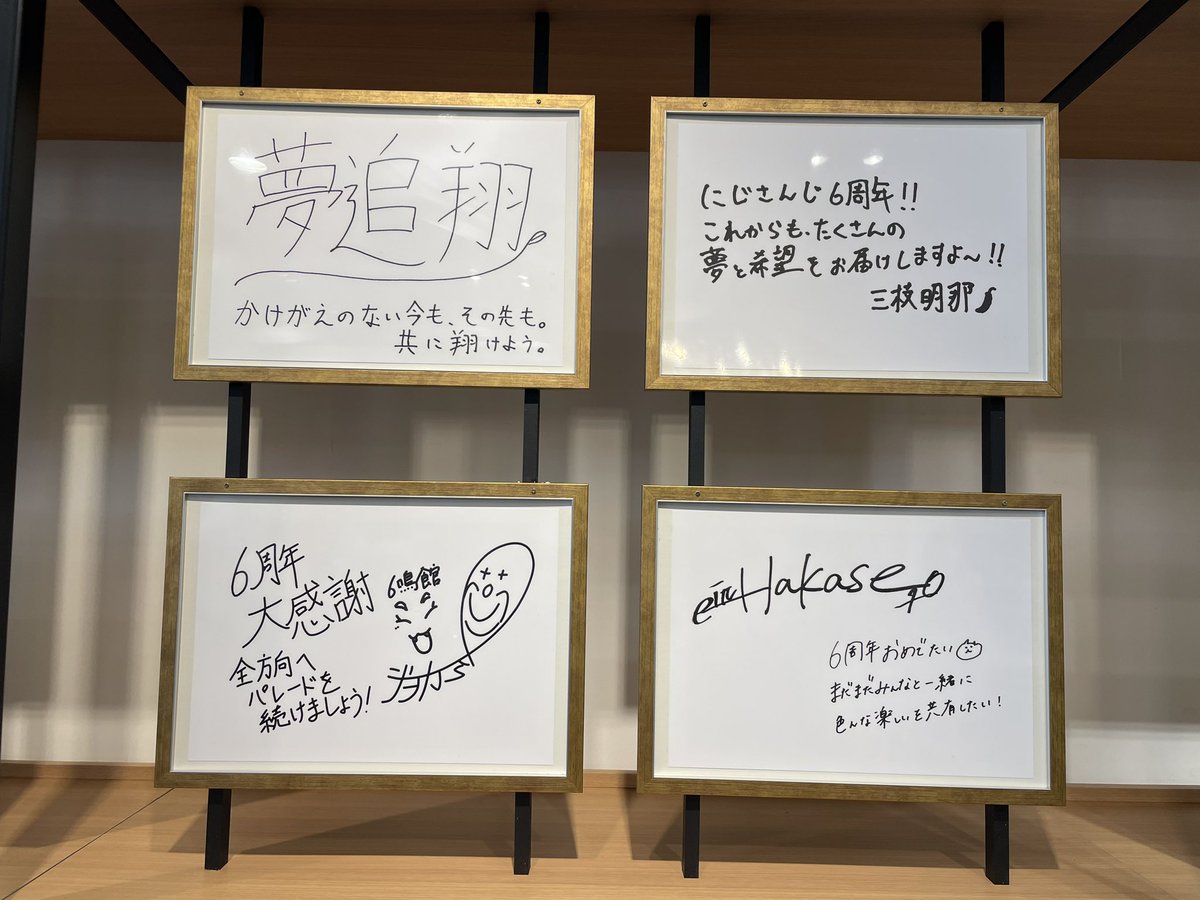 夢追翔
かけがえのない今も、その先も。
共に翔けよう。
にじさんじ6周年!!
これからも、たくさんの
夢と希望をお届けしますよ〜!!
三枝明那
6周年
大感謝
全方向へ
パレードを
続けましょう!
6鳴館
ジョカ
Hakase
6周年おめでたい
まだまだみんなと一緒に
色んな楽しいを共有したい!